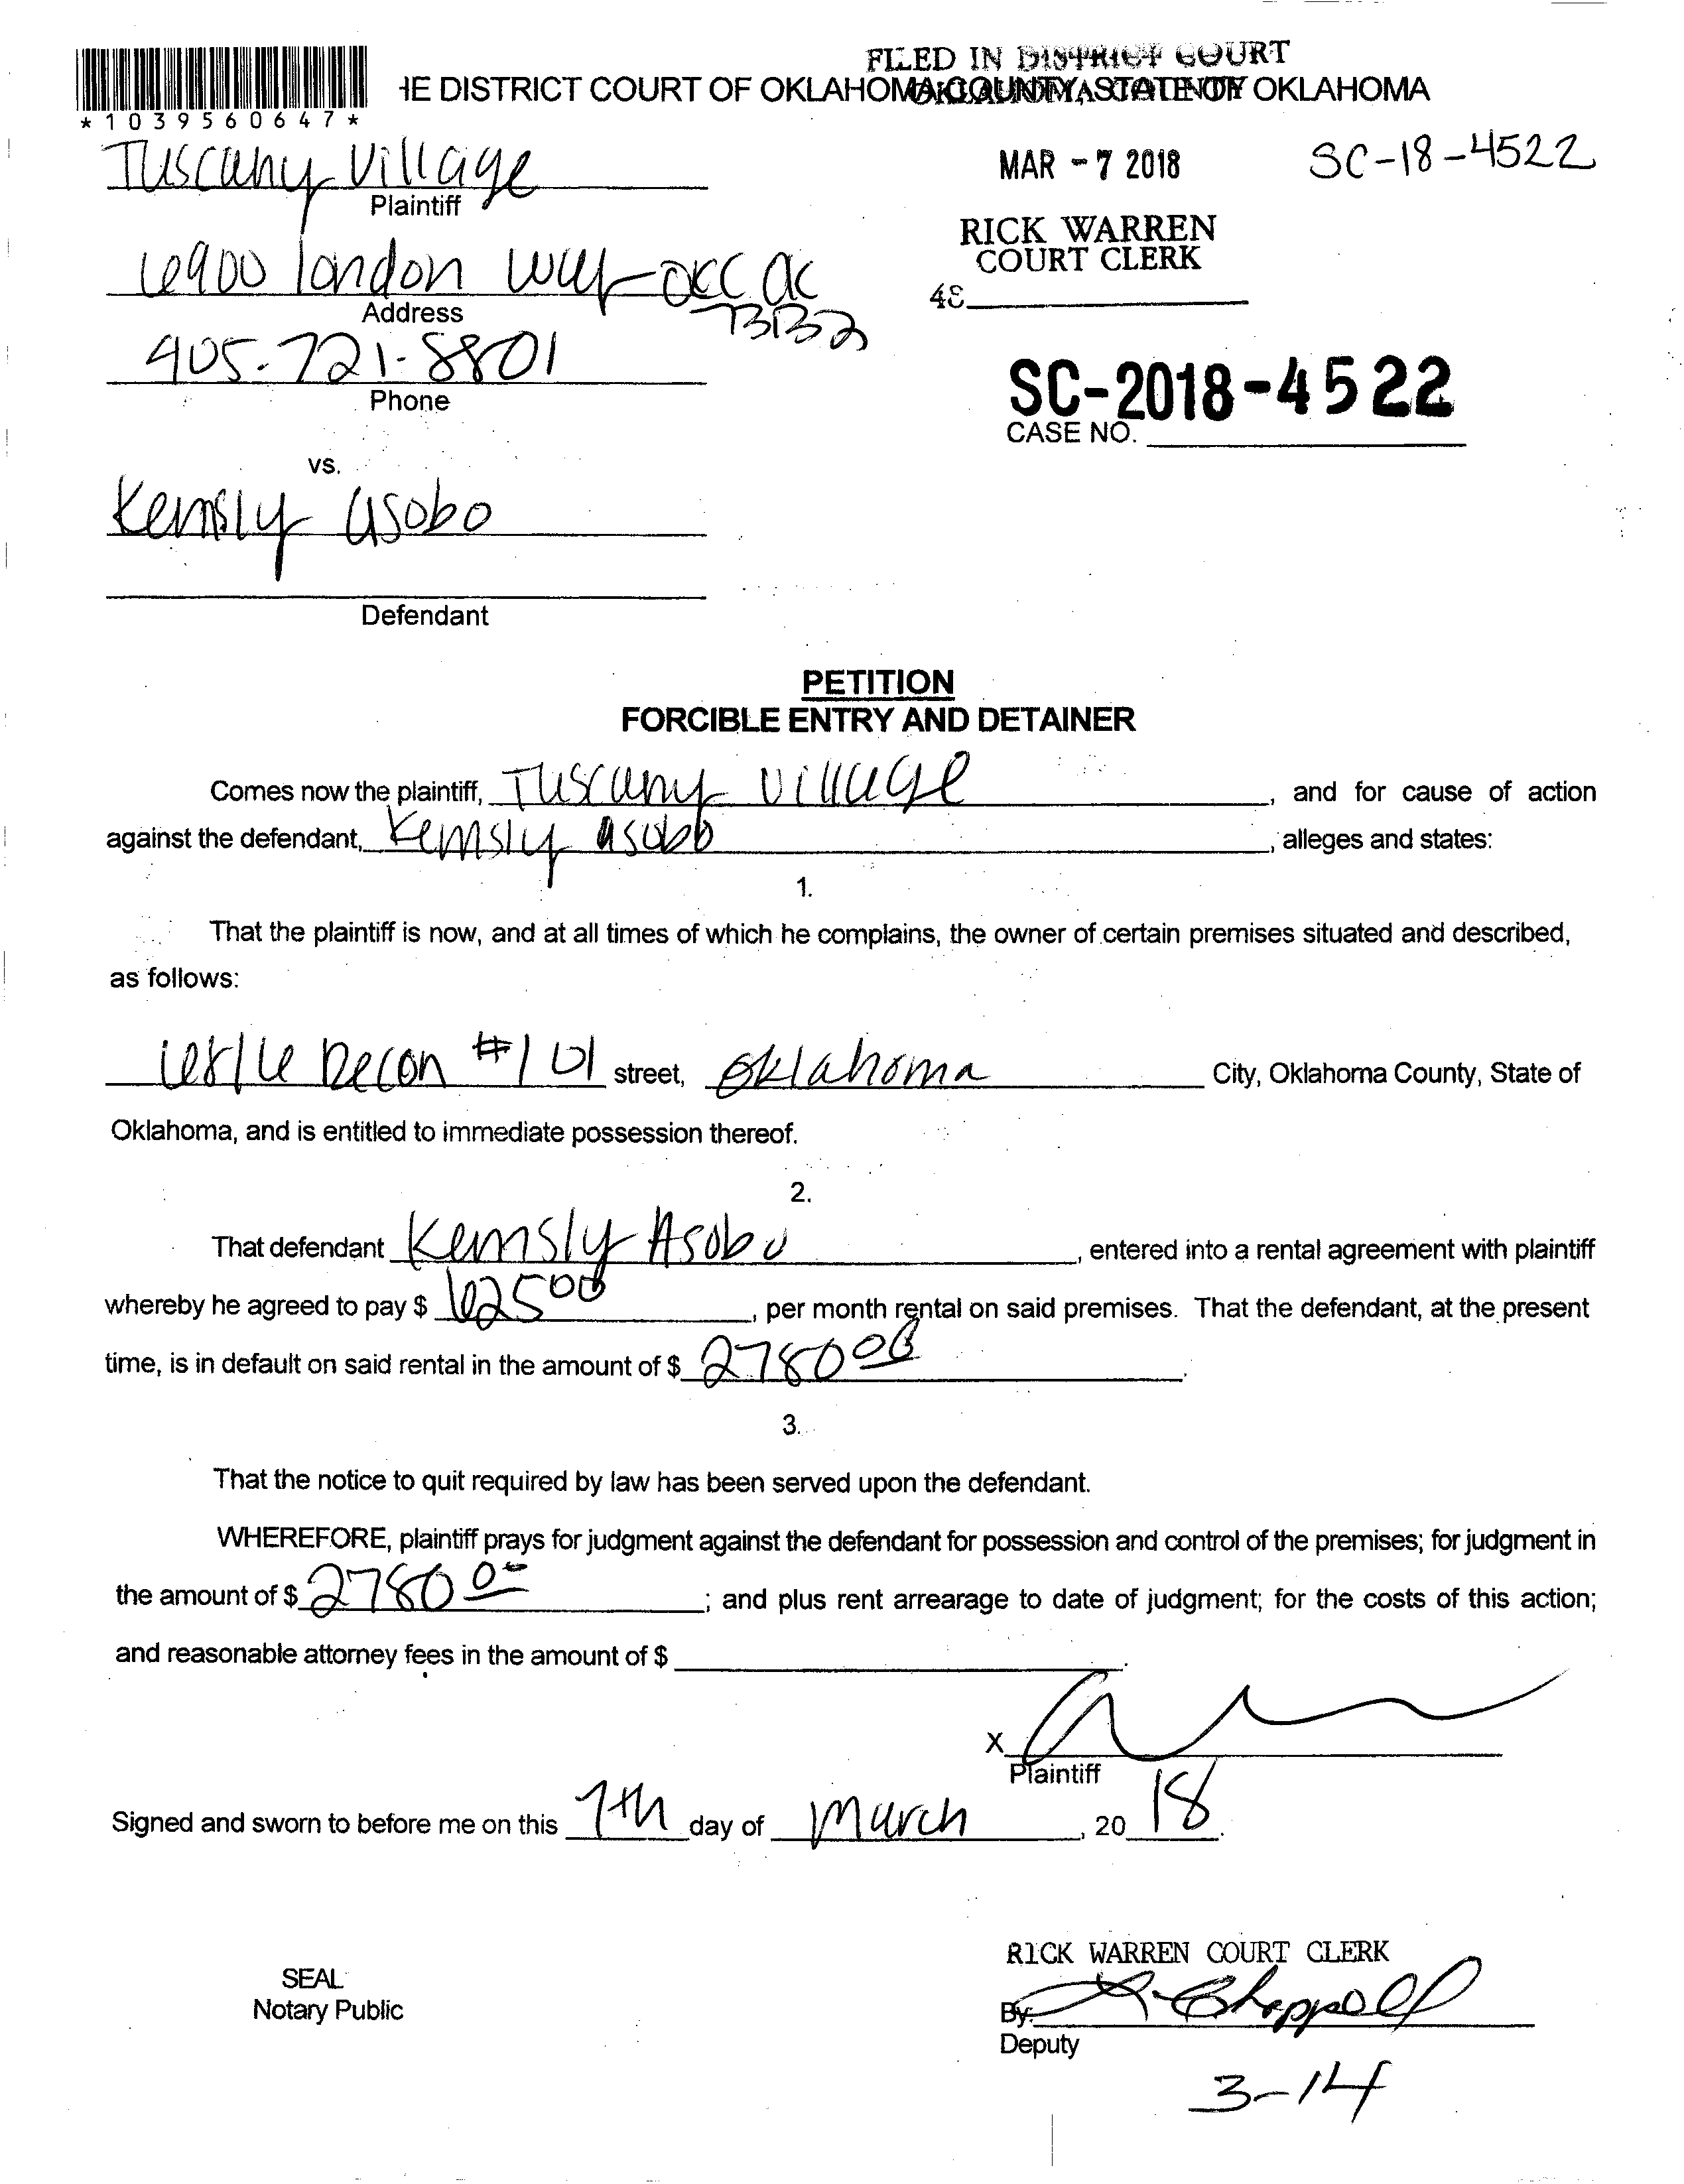 FILED IN DISTRICT COURT
HE DISTRICT COURT OF OKLAHOMA COUNTY, STATE OF OKLAHOMA
*1039560647*
Tuscany Village
Plaintiff
MAR - 7 2018
SC-18-4522
RICK WARREN
COURT CLERK
48
6900 london way OKC OK
73132
Address
405-721-8801
Phone
SC-2018-4522
CASE NO.
vs.
Kemsly asobo
Defendant
PETITION
FORCIBLE ENTRY AND DETAINER
Comes now the plaintiff, Tuscany village, and for cause of action
against the defendant, Kemsly asobo, alleges and states:
1.
That the plaintiff is now, and at all times of which he complains, the owner of certain premises situated and described,
as follows:
#101 street, Oklahoma City, Oklahoma County, State of
Oklahoma, and is entitled to immediate possession thereof.
2.
That defendant Kemsly Asobo, entered into a rental agreement with plaintiff
whereby he agreed to pay $ 62500, per month rental on said premises. That the defendant, at the present
time, is in default on said rental in the amount of $ 278000.
3.
That the notice to quit required by law has been served upon the defendant.
WHEREFORE, plaintiff prays for judgment against the defendant for possession and control of the premises; for judgment in
the amount of $ 278000; and plus rent arrearage to date of judgment; for the costs of this action;
and reasonable attorney fees in the amount of $
X
Plaintiff
Signed and sworn to before me on this 7th day of March, 20 18.
SEAL
Notary Public
RICK WARREN COURT CLERK
By: Chappell
Deputy
3-14